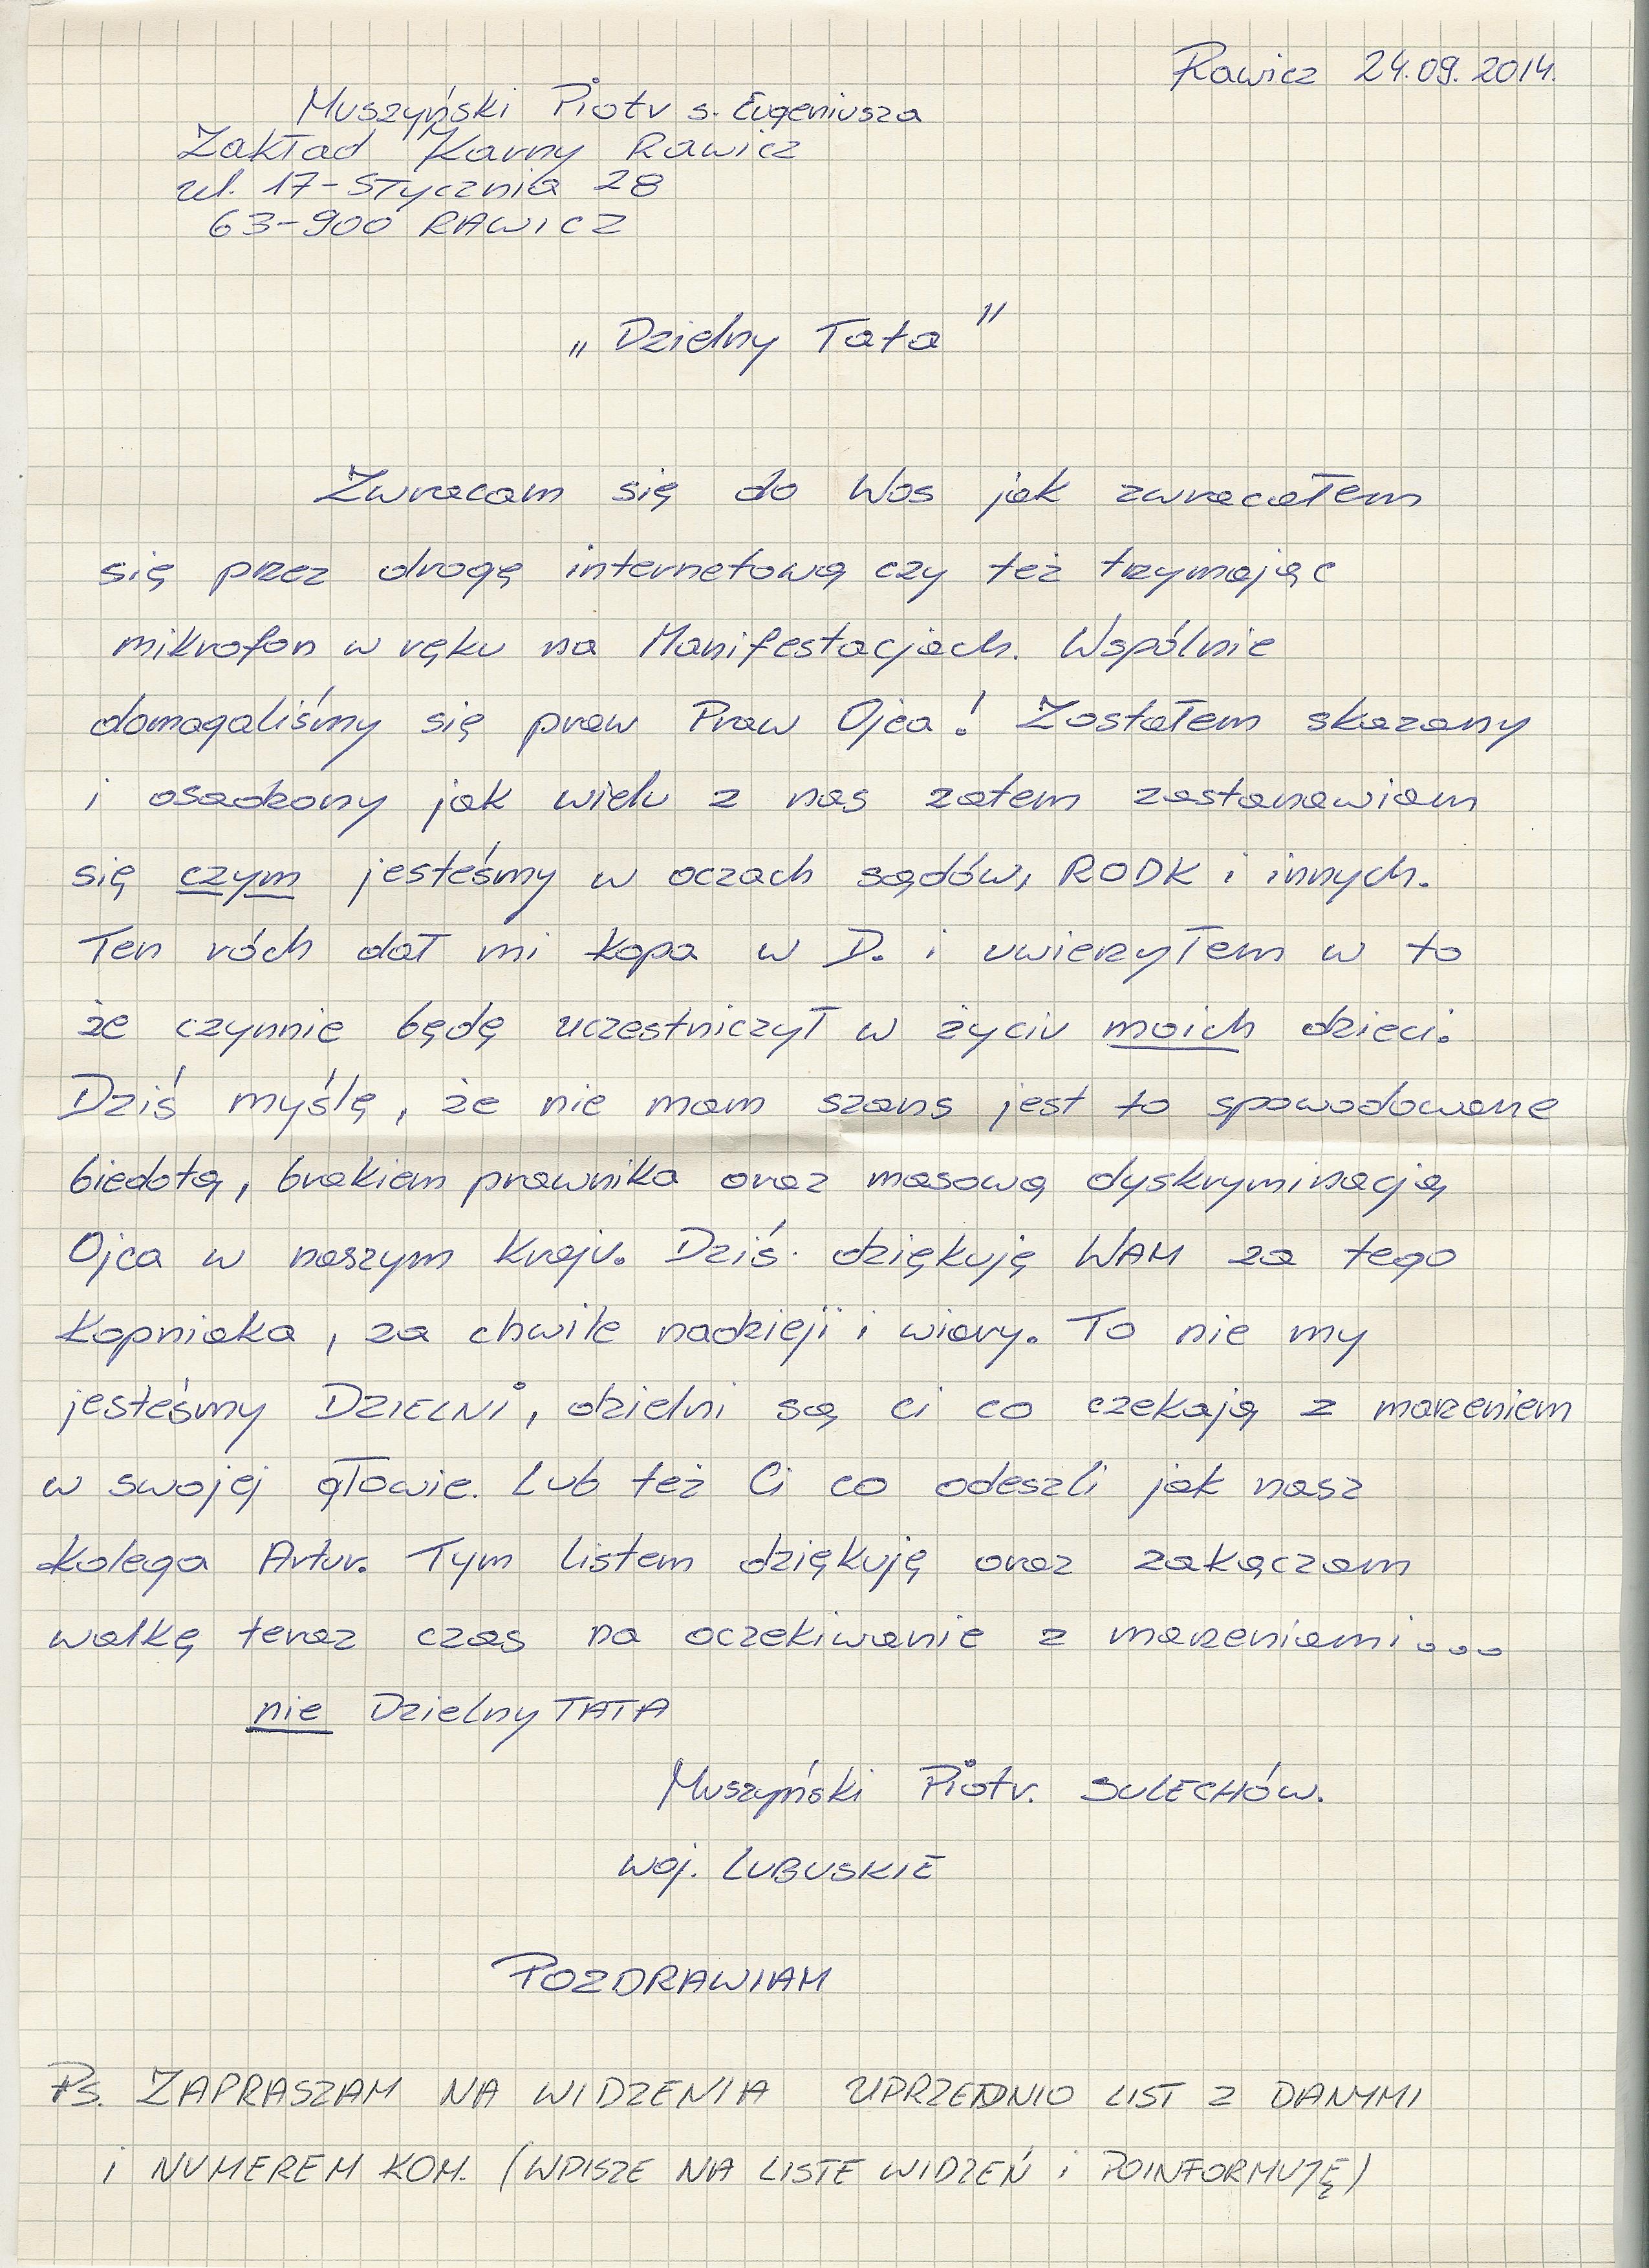 Rawicz 24.09.2014.
Muszyński Piotr s. Eugeniusza
Zakład Karny Rawicz
ul. 17-Stycznia 28
63-900 RAWICZ
„Dzielny Tata"
Zwracam się do Was jak zwracałem
się przez drogę internetową czy też trzymając
mikrofon w ręku na Manifestacjach. Wspólnie
domagaliśmy się praw Praw Ojca! Zostałem skazany
i osadzony jak wielu z nas zatem zastanawiam
się czym jesteśmy w oczach sądów, RODK i innych.
Ten róch dał mi kopa w D. i uwierzyłem w to
że czynnie będę uczestniczył w życiu moich dzieci.
Dziś myślę, że nie mam szans jest to spowodowane
biedotą, brakiem prawnika oraz masową dyskryminacją
Ojca w naszym Kraju. Dziś dziękuję WAM za tego
Kopniaka, za chwile nadzieji i wiary. To nie my
jesteśmy DZIELNI, dzielni są ci co czekają z marzeniem
w swojej głowie. Lub też Ci co odeszli jak nasz
kolega Artur. Tym listem dziękuję oraz zakączam
walkę teraz czas na oczekiwanie z marzeniami...
nie Dzielny TATA
Muszyński Piotr. SULECHÓW.
woj. LUBUSKIE
POZDRAWIAM
Ps. ZAPRASZAM NA WIDZENIA UPRZEDNIO LIST Z DANYMI
i NUMEREM KOM. (WPISZE NA LISTE WIDZEŃ i POINFORMUJĘ)